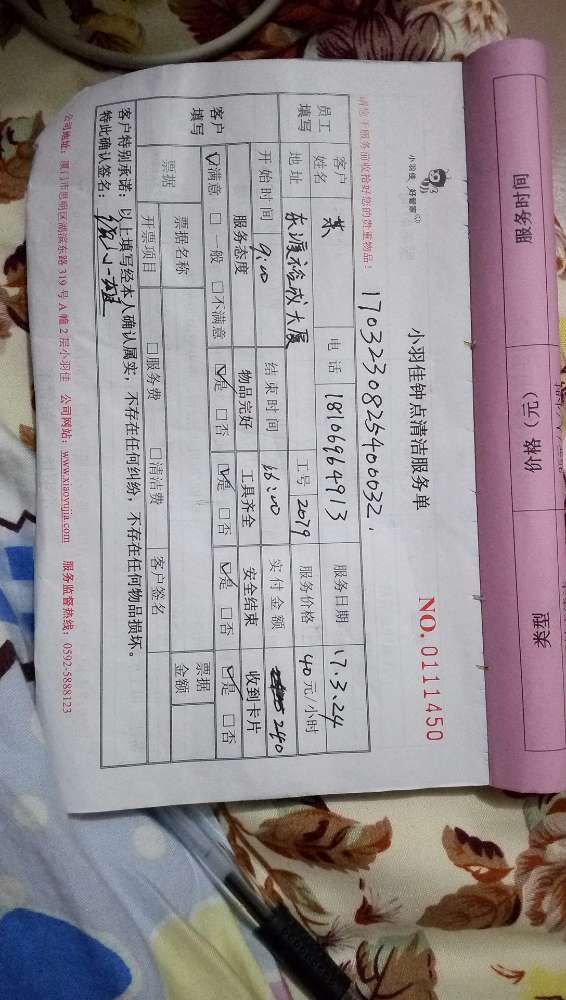 服务时间
价格（元）
类型
小羽佳 好管家
小羽佳钟点清洁服务单
NO. 0111450
请您于服务前收拾好您的贵重物品！
1703230825400032
员工填写
客户姓名
电话 18106964913
服务日期 17.3.24
地址 东渡裕成大厦
工号 2079
服务价格 40元/小时
开始时间 9:00
结束时间 16:00
实付金额 240
客户填写
服务态度 物品完好 工具齐全 安全结束 收到卡片
☑满意 □一般 □不满意 ☑是 □否 ☑是 □否 ☑是 □否 ☑是 □否
票据
票据名称
票据金额
开票项目 □服务费 □清洁费 客户签名
客户特别承诺：以上填写经本人确认属实，不存在任何纠纷，不存在任何物品损坏。
特此确认签名：
公司地址：厦门市思明区湖滨东路 319 号 A 幢 2 层小羽佳 公司网站：www.xiaoyujia.com 服务监督热线：0592-5888123